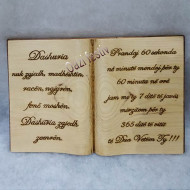 Dashuria
nuk zgjedh, moshëntim,
racën, ngjyrën,
fenë moshën.
Dashuria zgjedh
zemrën.
Prandaj 60 sekonda
në minutë mendoj për ty
60 minuta në orë
jam me ty 7 ditë të javës
mërzitem për ty
365 ditë të vitit
të Dua Vetëm Ty!!!